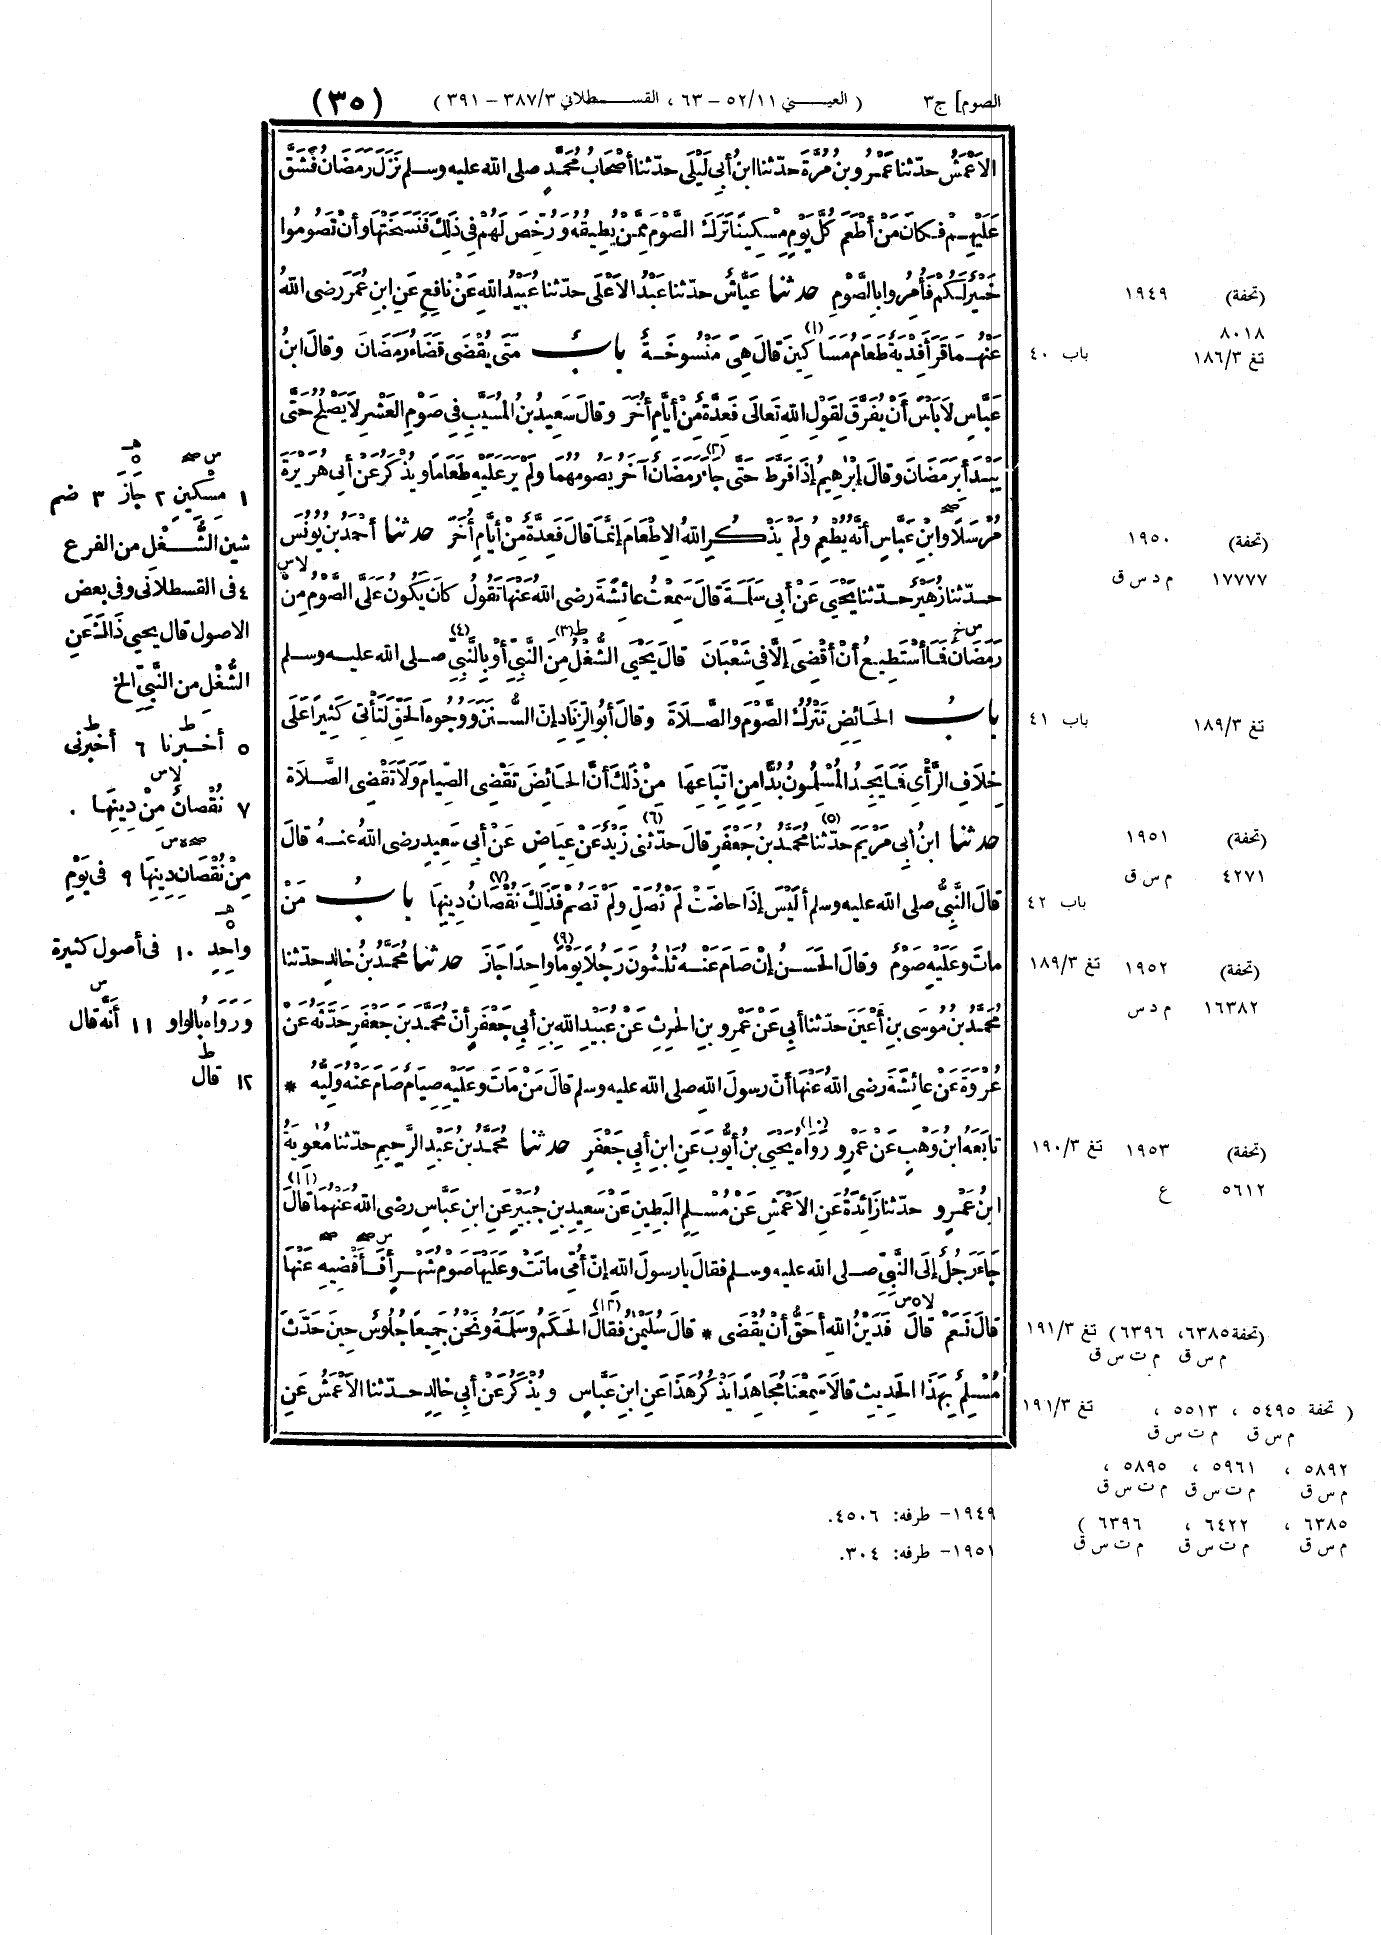 الصوم] ج٣ (العيني ١١/٥٢ - ٦٣ ، القسطلاني ٣/٣٨٧ - ٣٩١) (٣٥)
الأَعْمَشُ حدّثنا عَمْرُو بنُ مُرَّةَ حدّثنا ابنُ أبي لَيْلَى حدّثنا أصْحَابُ مُحَمَّدٍ صلى الله عليه وسلم نَزَلَ رَمَضَانُ فَشَقَّ
عَلَيْهِمْ فكانَ مَنْ أطْعَمَ كُلَّ يَوْمٍ مِسْكِينًا تَرَكَ الصَّوْمَ مِمَّنْ يُطِيقُهُ وَرُخِّصَ لَهُمْ فِي ذَلِكَ فَنَسَخَتْهَا وأنْ تَصُومُوا
خَيْرٌ لَكُمْ فَأُمِرُوا بِالصَّوْمِ حدثنا عَيَّاشٌ حدّثنا عَبْدُ الأَعْلَى حدّثنا عُبَيْدُ اللهِ عَنْ نافِعٍ عَنِ ابنِ عُمَرَ رضى اللهُ
عَنْهُما قَرَأَ فِدْيَةٌ طَعَامُ مَسَاكِينَ (١) قالَ هِيَ مَنْسُوخَةٌ بابٌ مَتَى يُقْضَى قَضَاءُ رَمَضَانَ وقالَ ابنُ
عَبَّاسٍ لَا بَأْسَ أنْ يُفَرَّقَ لِقَوْلِ اللهِ تَعالَى فَعِدَّةٌ مِنْ أيَّامٍ أُخَرَ وقالَ سَعِيدُ بنُ المُسَيَّبِ فِي صَوْمِ العَشْرِ لَا يَصْلُحُ حَتَّى
يَبْدَأَ بِرَمَضَانَ وقالَ إبْرَاهِيمُ إذَا فَرَّطَ حَتَّى جَاءَ (٢) رَمَضَانُ آخَرُ يَصُومُهُمَا ولَمْ يَرَ عَلَيْهِ طَعَامًا ويُذْكَرُ عَنْ أبِى هُرَيْرَةَ
مُرْسَلًا وابنِ عَبَّاسٍ أنَّهُ يُطْعِمُ ولَمْ يَذْكُرِ اللهُ الإطْعَامَ إنَّمَا قالَ فَعِدَّةٌ مِنْ أيَّامٍ أُخَرَ حدثنا أحْمَدُ بنُ يُونُسَ
حدّثنا زُهَيْرٌ حدّثنا يَحْيَى عَنْ أبِي سَلَمَةَ قالَ سَمِعْتُ عائِشَةَ رضى اللهُ عَنْهَا تَقُولُ كانَ يَكُونُ عَلَيَّ الصَّوْمُ مِنْ
رَمَضَانَ فَمَا أسْتَطِيعُ أنْ أقْضِيَ إلَّا فِي شَعْبَانَ قالَ يَحْيَى الشُّغْلُ (٣) مِنَ النَّبِيِّ أوْ بِالنَّبِيِّ (٤) صلى الله عليه وسلم
بابُ الحَائِضِ تَتْرُكُ الصَّوْمَ والصَّلَاةَ وقالَ أبُو الزِّنَادِ إنَّ السُّنَنَ وَوُجُوهَ الحَقِّ لَتَأْتِي كَثِيرًا عَلَى
خِلَافِ الرَّأْيِ فَمَا يَجِدُ المُسْلِمُونَ بُدًّا مِنِ اتِّبَاعِهَا مِنْ ذَلِكَ أنَّ الحَائِضَ تَقْضِى الصِّيَامَ وَلَا تَقْضِى الصَّلَاةَ
حدثنا ابنُ أبِي مَرْيَمَ حدّثنا (٥) مُحَمَّدُ بنُ جَعْفَرٍ قالَ حدّثنى (٦) زَيْدٌ عَنْ عِيَاضٍ عَنْ أبِي سَعِيدٍ رضى اللهُ عنهُ قالَ
قالَ النَّبِيُّ صلى الله عليه وسلم ألَيْسَ إذَا حاضَتْ لَمْ تُصَلِّ ولَمْ تَصُمْ فَذَلِكَ نُقْصَانُ (٧) دِينِهَا بابُ مَنْ
ماتَ وعَلَيْهِ صَوْمٌ وقالَ الحَسَنُ إنْ صامَ عَنْهُ ثَلَاثُونَ رَجُلًا يَوْمًا (٩) واحِدًا جازَ حدثنا مُحَمَّدُ بنُ خالِدٍ حدّثنا
مُحَمَّدُ بنُ مُوسَى بنِ أعْيَنَ حدّثنا أبِي عَنْ عَمْرِو بنِ الحٰرِثِ عَنْ عُبَيْدِ اللهِ بنِ أبِي جَعْفَرٍ أنَّ مُحَمَّدَ بنَ جَعْفَرٍ حَدَّثَهُ عَنْ
عُرْوَةَ عَنْ عائِشَةَ رضى اللهُ عَنْهَا أنَّ رسولَ اللهِ صلى الله عليه وسلم قالَ مَنْ ماتَ وعَلَيْهِ صِيَامٌ صامَ عَنْهُ وَلِيُّهُ *
تابَعَهُ ابنُ وَهْبٍ عَنْ عَمْرٍو رَوَاهُ (١٠) يَحْيَى بنُ أيُّوبَ عَنِ ابنِ أبِي جَعْفَرٍ حدثنا مُحَمَّدُ بنُ عَبْدِ الرَّحِيمِ حدّثنا مُعٰوِيَةُ
ابنُ عَمْرٍو حدّثنا زَائِدَةُ عَنِ الأَعْمَشِ عَنْ مُسْلِمٍ البَطِينِ عَنْ سَعِيدِ بنِ جُبَيْرٍ عَنِ ابنِ عَبَّاسٍ رضى اللهُ عَنْهُمَا قالَ (١١)
جَاءَ رَجُلٌ إلَى النَّبِيِّ صلى الله عليه وسلم فقالَ يا رسولَ اللهِ إنَّ أُمِّي ماتَتْ وعَلَيْهَا صَوْمُ شَهْرٍ أفَأَقْضِيهِ عَنْهَا
قالَ نَعَمْ قالَ فَدَيْنُ اللهِ أحَقُّ أنْ يُقْضَى * قالَ سُلَيْمٰنُ فَقالَ (١٢) الحَكَمُ وسَلَمَةُ ونَحْنُ جَمِيعًا جُلُوسٌ حِينَ حَدَّثَ
مُسْلِمٌ بِهَذَا الحَدِيثِ قالَا سَمِعْنَا مُجَاهِدًا يَذْكُرُ هَذَا عَنِ ابنِ عَبَّاسٍ ويُذْكَرُ عَنْ أبِي خالِدٍ حدّثنا الأَعْمَشُ عَنِ
١٩٤٩- طرفه: ٤٥٠٦.
١٩٥١- طرفه: ٣٠٤.
(تحفة) ١٩٤٩
٨٠١٨
تغ ٣/١٨٦ باب ٤٠
(تحفة) ١٩٥٠
١٧٧٧٧ م د س ق
تغ ٣/١٨٩ باب ٤١
(تحفة) ١٩٥١
٤٢٧١ م س ق
باب ٤٢
(تحفة) ١٩٥٢ تغ ٣/١٨٩
١٦٣٨٢ م د س
(تحفة) ١٩٥٣ تغ ٣/١٩٠
٥٦١٢ ع
(تحفة ٦٣٨٥، ٦٣٩٦) تغ ٣/١٩١
م س ق م ت س ق
( تحفة ٥٤٩٥ ، ٥٥١٣ ، تغ ٣/١٩١
م س ق م ت س ق
٥٨٩٢ ، ٥٩٦١ ، ٥٨٩٥ ،
م س ق م ت س ق م ت س ق
٦٣٨٥ ، ٦٤٢٢ ، ٦٣٩٦ )
م س ق م ت س ق م ت س ق
١ مِسْكِينٍ ٢ جَازَ ٣ ضم
شين الشُّغْلِ من الفرع
٤ فى القسطلانى وفى بعض
الاصول قال يحيى ذَاكَ عَنِ
الشُّغْلِ من النَّبِيِّ الخ
٥ أخبرنا ٦ أخبرنى
٧ نُقْصانٌ مِنْ دِينِهَا .
مِنْ نُقْصَانِ دِينِهَا ٩ فى يَوْمٍ
واحِدٍ ١٠ فى أصول كثيرة
وَرَوَاهُ بالواو ١١ أنَّه قال
١٢ قال